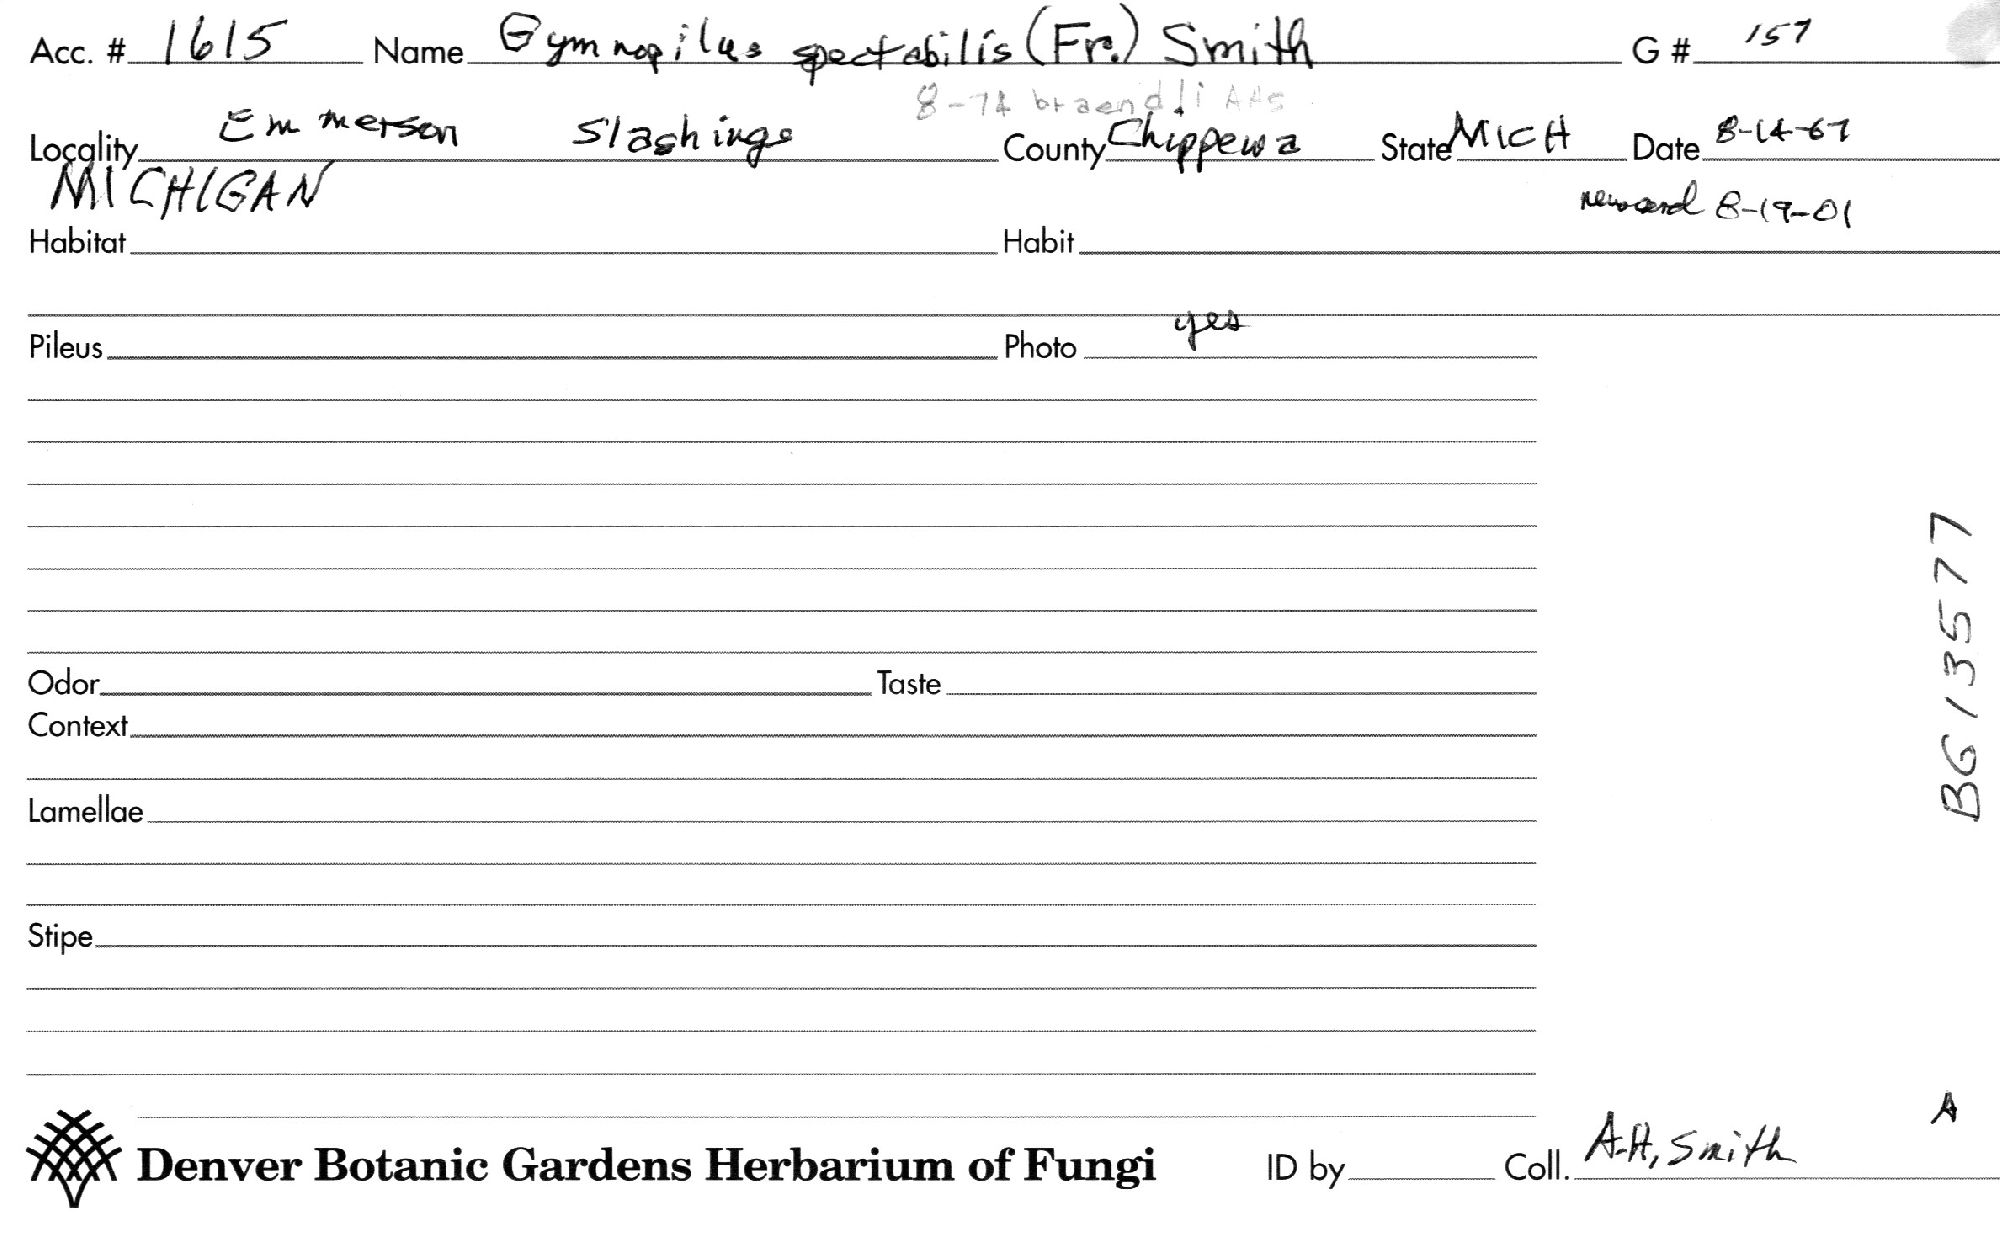 Acc. # 1615 Name Gymnopilus spectabilis (Fr.) Smith G # 157
8-74 braendli AHS
Locality Emmerson Slashings County Chippewa State MICH Date 8-14-67
MICHIGAN new card 8-19-01
Habitat Habit
Pileus Photo yes
Odor Taste
Context
Lamellae
Stipe
BG13577
A
Denver Botanic Gardens Herbarium of Fungi ID by Coll. A.H. Smith